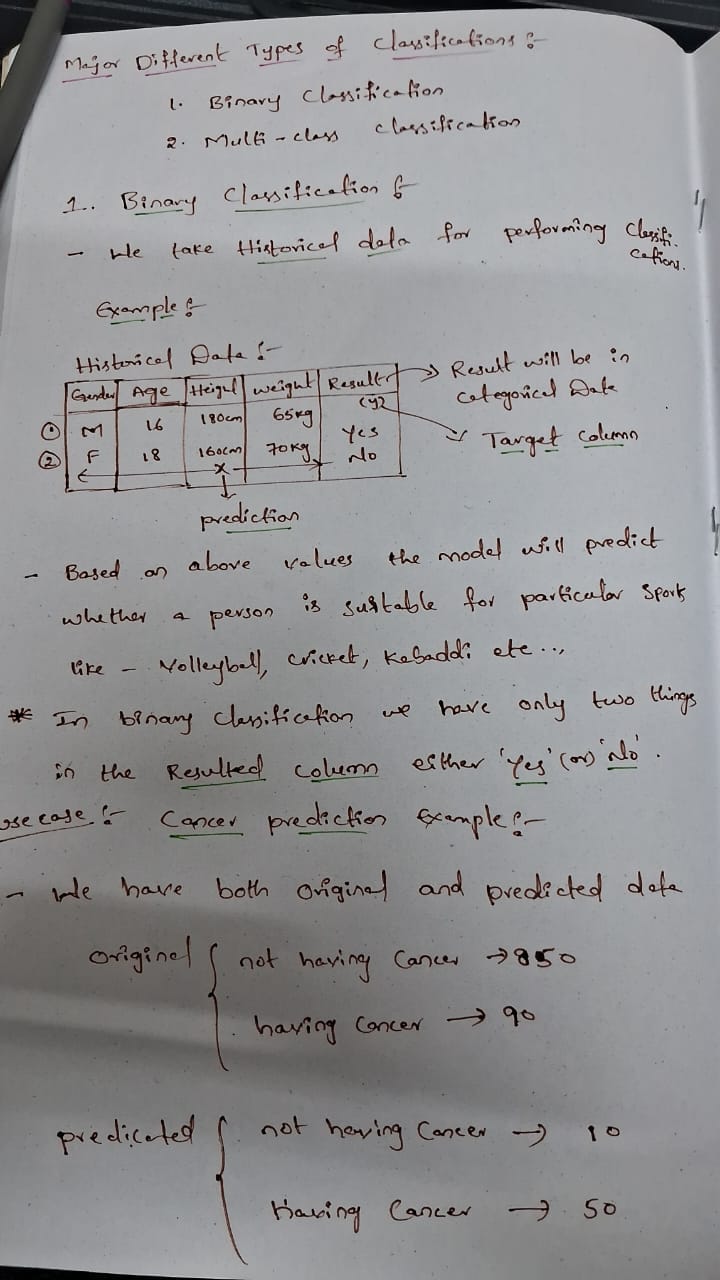 Major Different Types of Classifications :-
1. Binary Classification
2. Multi-class classification
1. Binary Classification :-
- We take Historical data for performing Classifi-
cations.
Example :-
Historical Data :-
Gender Age Height weight Result → Result will be in
(y) categorical Data
① M 16 180cm 65kg Yes → Target column
② F 18 160cm 70kg No
x
prediction
- Based on above values the model will predict
whether a person is suitable for particular sports
like - Volleyball, cricket, Kabaddi etc...
* In binary classification we have only two things
in the Resulted column either 'Yes' (or) 'No'.
use case :- Cancer prediction Example :-
- We have both original and predicted data
original { not having Cancer → 850
having Cancer → 90
predicated { not having Cancer → 10
Having Cancer → 50